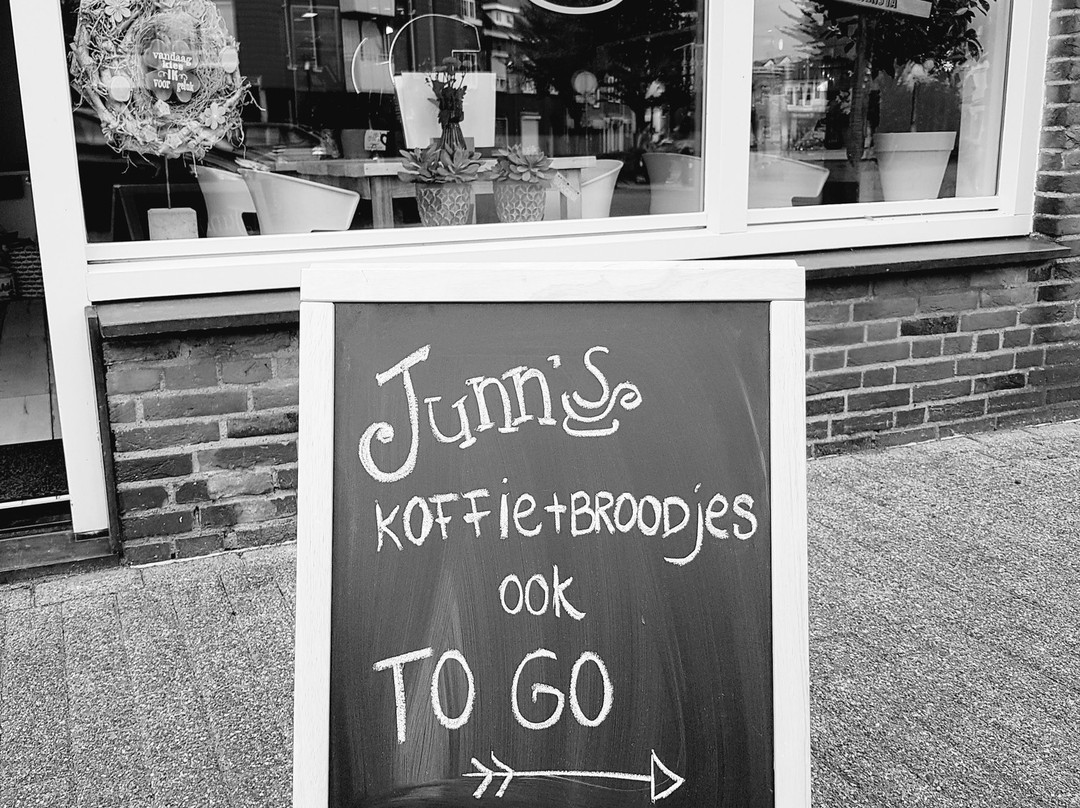 vandaag
kies
IK
voor geluk
Junn's
KOFFie+BROODjes
ook
TO GO